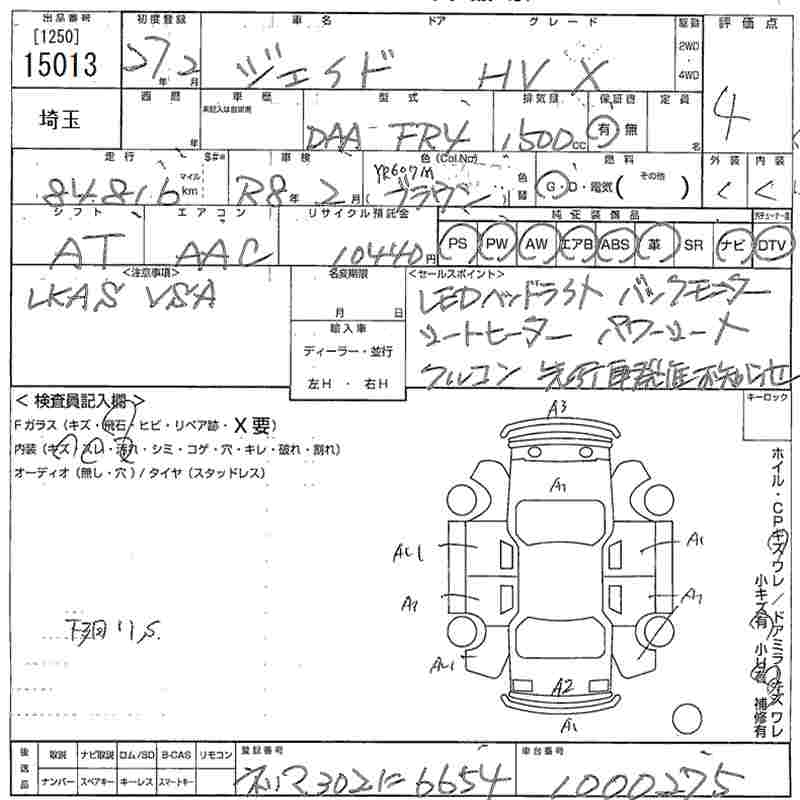 出品番号 初度登録 車名 ドア グレード 駆動 評価点
[1250]
15013 27 2 年 月 ジェイド HV X 2WD 4WD 4
埼玉 西暦 年 車歴 未記入は自家用 型式 排気量 保証書 定員
DAA-FR4 1500 cc 有 無 名
走行 $#* 車検 色(Col.No) 燃料 外装 内装
84816 マイル km R8 年 2 月 YR607M (ブラウン) 色替 G・D・電気( その他 ) C C
シフト エアコン リサイクル預託金 純正装備品
AT AAC 10440円 PS PW AW エアB ABS 革 SR ナビ DTV
<注意事項> 名変期限 <セールスポイント>
LKAS VSA 月 日 LEDヘッドライト バックモニター
輸入車 シートヒーター パワーシート
ディーラー・並行
左H ・ 右H クルコン 先行車発進お知らせ
< 検査員記入欄 > キーロック
Fガラス(キズ・飛石・ヒビ・リペア跡・X要)
内装(キズ・スレ・汚れ・シミ・コゲ・穴・キレ・破れ・割れ)
オーディオ(無し・穴)/タイヤ(スタッドレス)
下回りS
A3
A1
AU1 A1
A2 A1
AU1
A2
A1
ホイル・CPキズワレ/ドアミラーキズワレ
小キズ有 小凹有 補修有
後送品 取説 ナビ取説 ロム/SD B-CAS リモコン 登録番号 車台番号
ナンバー スペアキー キーレス スマートキー 302に6654 1000275